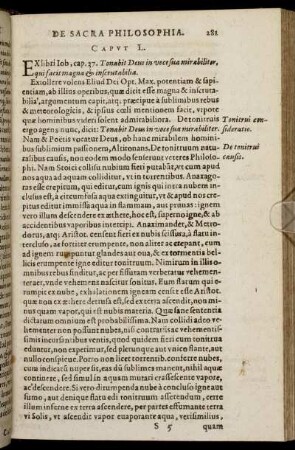 DE SACRA PHILOSOPHIA. 281
CAPVT L.
EX libri Iob, cap. 37. Tonabit Deus in voce sua mirabiliter,
qui facit magna & inscrutabilia.
Exiollere volens Eliud Dei Opt. Max. potentiam & sapi-
entiam, ab illius operibus, quæ dicit esse magna & inscruta-
bilia, argumentum capit, atq; præcipuè à sublimibus rebus
& meteorologicis, & ipsius cœli mentionem facit, vipote
quibus omnes videri solent admirabiliora. De tonitruis
ergo agens nunc, dicit: Tonabit Deus in voce sua mirabiliter.
Nam & Poetis vocatus Deus, ob hunc mirabilem homini-
bus sublimium passionem, Altitonans. De tonitruum natu-
ralibus causis, non eodem modo senserunt veteres Philoso-
phi. Nam Stoici collisis nubibus id fieri putabāt, vt cum apud
nos aqua ad aquam colliditur, vt in torrentibus. Anaxago-
ras esse crepitum, qui editur, cum incidit ignis in nubem,
quam continuò extinguit aqua extinguitur, vt & apud nos cre-
pitus editur immissa aqua in flammam, aut prunas: ignem
verò illum descendere ex æthere, hoc est, superno igne, & ab
accidentibus vaporibus interipi. Anaximander, & Metro-
dorus, atq; Aristot. censent fieri ex nubis scissura, à flatu in-
cluso, ae torrēter erumpente, non aliter ac crepant, cum
ad ignem rumpuntur glandes aut oua, & ex tormentis bel-
licis erumpente igne editur tonitruum. Nimirum in illo o-
mnibus rebus sinditur, ac per fissuram verberatus vehemen-
ter aer, vnde nascitur vehemens sonitus. Eum flatum quo e-
rumpit ex nube, in ignem ascendi ob vehementem motum,
quæ non ex æthere detrusa est, sed ex nube ascensa est, non mi-
nus quàm vapor, qui est nubis materia. Quæ sane sententia
dictatum omnium est probabilissima. Nam collidi adeo ve-
hementer non possunt nubes, nisi contrariis ac vehementis-
simè incurrentibus ventis, quod quidem fieri cum tonitrua
eduntur, non experimur, sed plerunque aut vnico flante, aut
nullo conspicuè. Porro non licet torrentib. conferre nubes,
cum immissum sit super nos esse in aere aquam, simili caeli-
tate, sed ē simul in aquam mutari crassescente vapore,
ac descendere. Si vero disrumpenda nubè à concluso igne aut
fumo, aut denique flatu edi tonitruum assertendum, terre
illum inferne ex terra ascendere, per partes essumante terra
vi Solis, vt ascendit vapor euaporante aqua, verisimilius,
S 5 quam
Tonitrui con-
sideratio.
De tonitrui
causis.